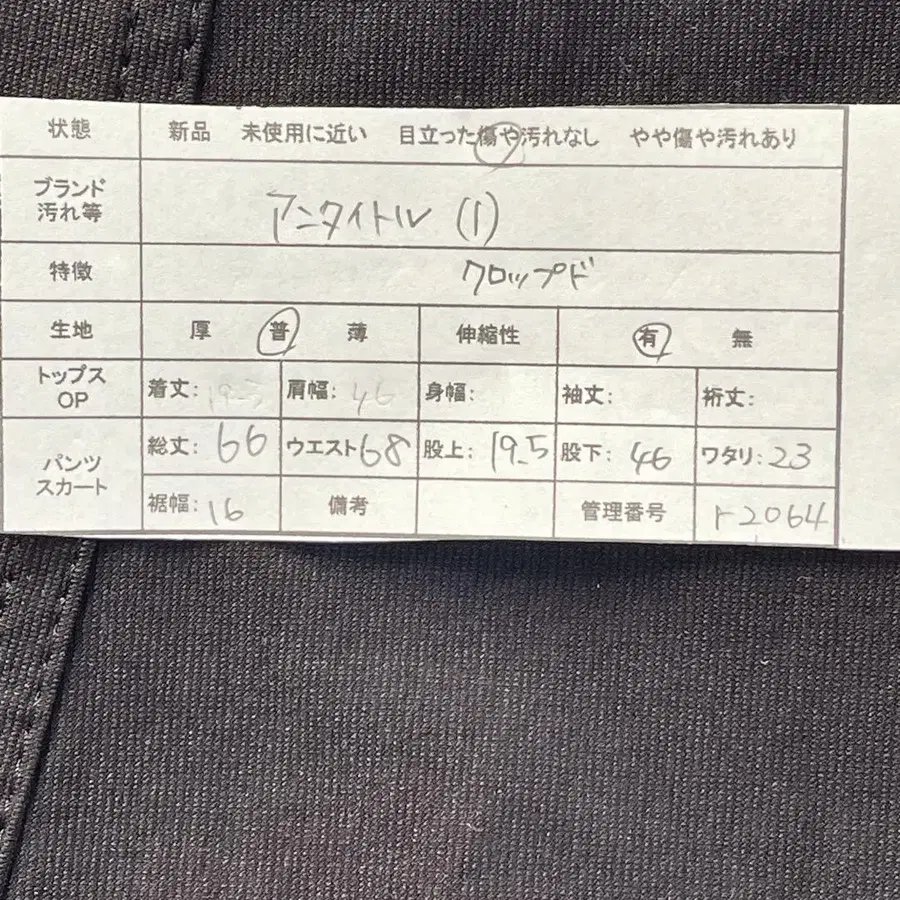 状態 新品 未使用に近い 目立った傷や汚れなし やや傷や汚れあり
ブランド
汚れ等
アンタイトル (1)
特徴 クロップド
生地 厚 普 薄 伸縮性 有 無
トップス
OP
着丈: 肩幅: 46 身幅: 袖丈: 裄丈:
パンツ
スカート
総丈: 66 ウエスト68 股上: 19.5 股下: 46 ワタリ: 23
裾幅: 16 備考 管理番号 r2064